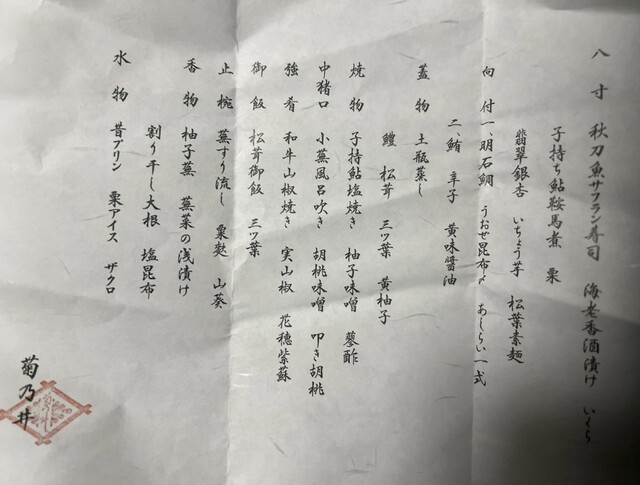 八寸 秋刀魚サフラン寿司 海老香酒漬け いくら
子持ち鮎鞍馬煮 栗
翡翠銀杏 いちょう芋 松葉素麺
向付 一、明石鯛 うおぜ昆布〆 あしらい一式
二、鮪 辛子 黄味醤油
蓋物 土瓶蒸し
鱧 松茸 三ツ葉 黄柚子
焼物 子持鮎塩焼き 柚子味噌 蓼酢
中猪口 小蕪風呂吹き 胡桃味噌 叩き胡桃
強肴 和牛山椒焼き 実山椒 花穂紫蘇
御飯 松茸御飯 三ツ葉
止椀 蕪すり流し 粟麩 山葵
香物 柚子蕪 蕪菜の浅漬け
割り干し大根 塩昆布
水物 昔プリン 栗アイス ザクロ
菊乃井